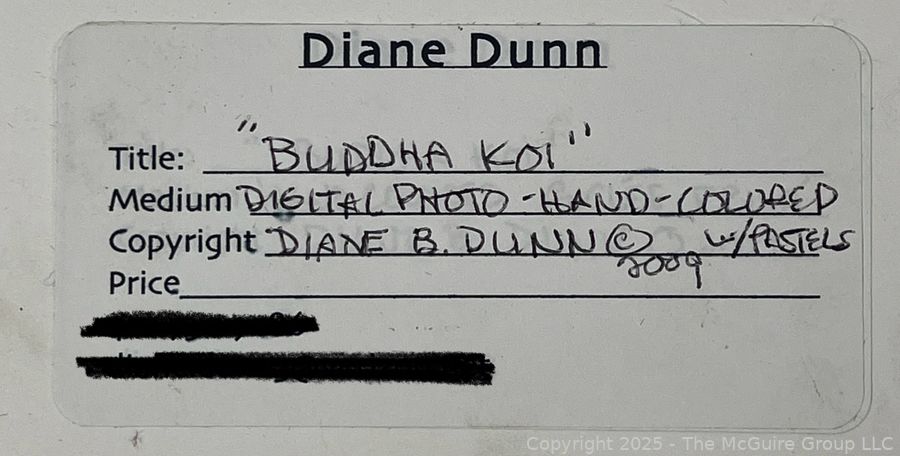 Diane Dunn
Title: "BUDDHA KOI"
Medium DIGITAL PHOTO - HAND - COLORED
Copyright DIANE B. DUNN © w/PASTELS
2009
Price
Copyright 2025 - The McGuire Group LLC